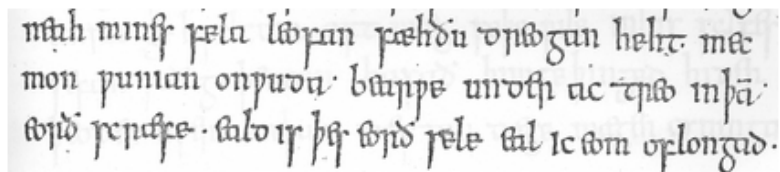 neah mines fela leofan fæhðu dreogan heht mec
mon ƿunian onƿuda bearƿe under ac treo inþā
eorð scræfe · eald is þes eorð sele eal ic eom oflongad ·